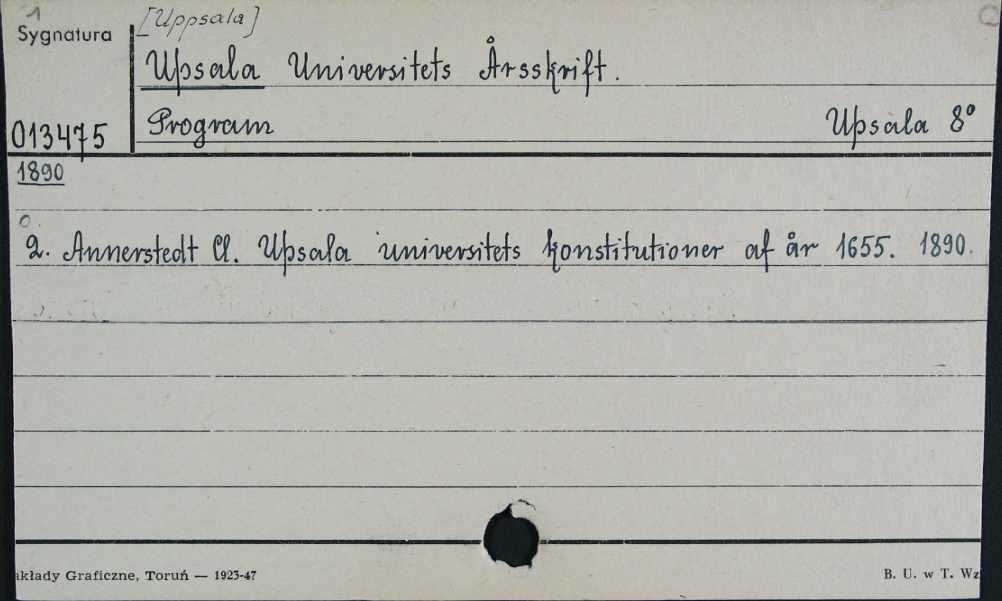 1
[Uppsala]
Sygnatura
Upsala Universitets Årsskrift.
013475
Program Upsala 8°
1890
2. Annerstedt Cl. Upsala universitets konstitutioner af år 1655. 1890.
akłady Graficzne, Toruń — 1923-47
B. U. w T. Wz